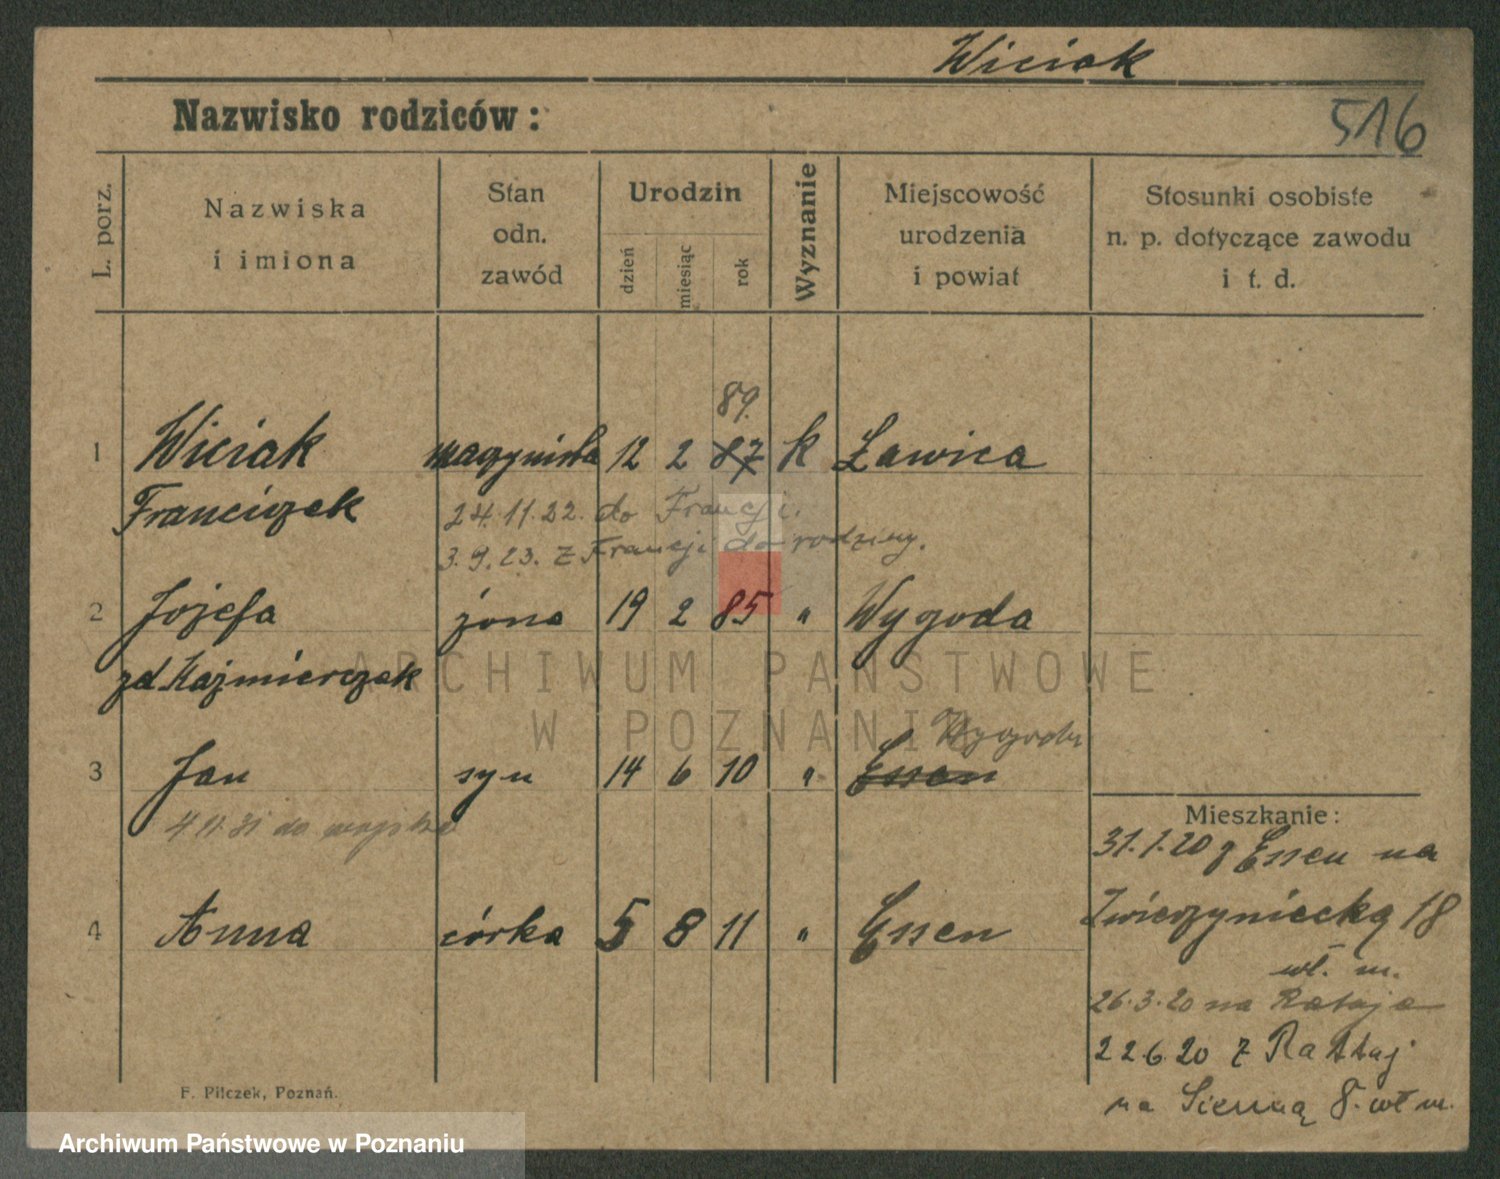 Wiciak
Nazwisko rodziców:
516
L. porz.
Nazwiska
i imiona
Stan
odn.
zawód
Urodzin
dzień
miesiąc
rok
Wyznanie
Miejscowość
urodzenia
i powiat
Stosunki osobiste
n. p. dotyczące zawodu
i t. d.
89.
1 Wiciak 12 2 87 k Ławica
Franciszek 24.11.22. do Francji.
3.9.23. z Francji do rodziny.
2 Józefa żona 19 2 85 " Wygoda
zd Kaźmierczak
ARCHIWUM PAŃSTWOWE
W POZNANIU
Wygoda
3 Jan syn 14 6 10 " Essen
4.11.31 do wojska
Mieszkanie:
31.1.20 z Essen na
Zwierzyniecką 18
wł. m.
4 Anna córka 5 8 11 " Essen
26.3.20 na Rataje
22.6.20 z Rattaj
na Sienną 8. wł m.
F. Pilczek, Poznań.
Archiwum Państwowe w Poznaniu